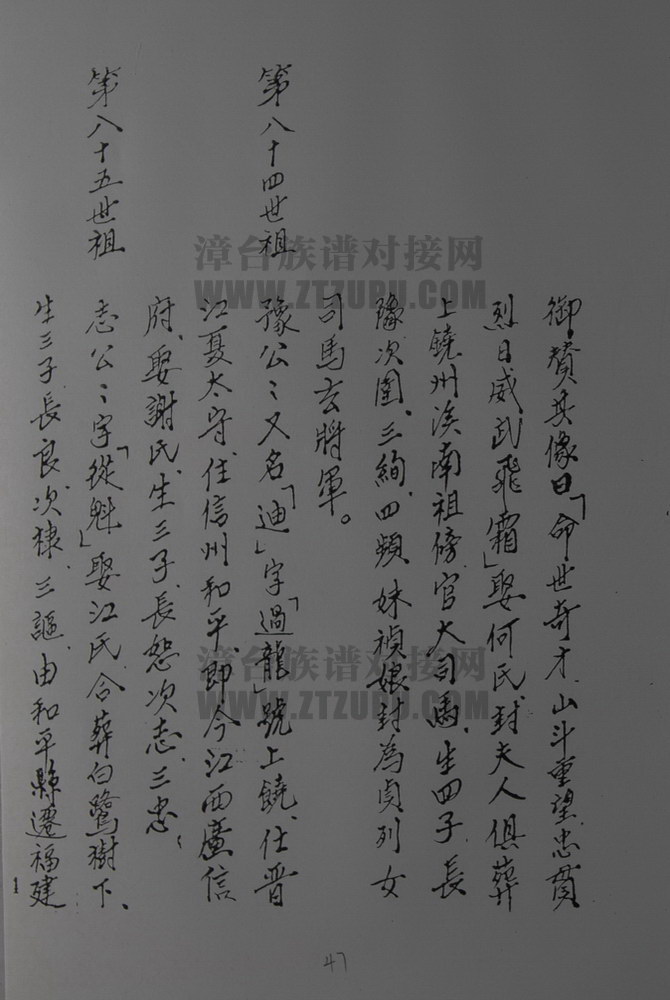 御贊其像曰「命世奇才、山斗重望、忠貫
烈日威武飛霜」娶何氏、封夫人俱葬
上饒州溪南祖傍、官大司馬、生四子、長
豫次圍、三絢、四頻、妹禎娘封為貞列女
司馬玄將軍。
第八十四世祖
豫公、又名「迪」字「過龍」號上饒、仕晋
江夏太守、住信州和平、即今江西廣信
府、娶謝氏、生三子、長恕次志、三忠、
第八十五世祖
志公、字「從魁」娶江氏合葬白鷺樹下、
生三子、長良、次棣、三謳、由和平縣遷福建
1
47
漳台族谱对接网
WWW.ZTZUPU.COM
漳台族谱对接网
WWW.ZTZUPU.COM